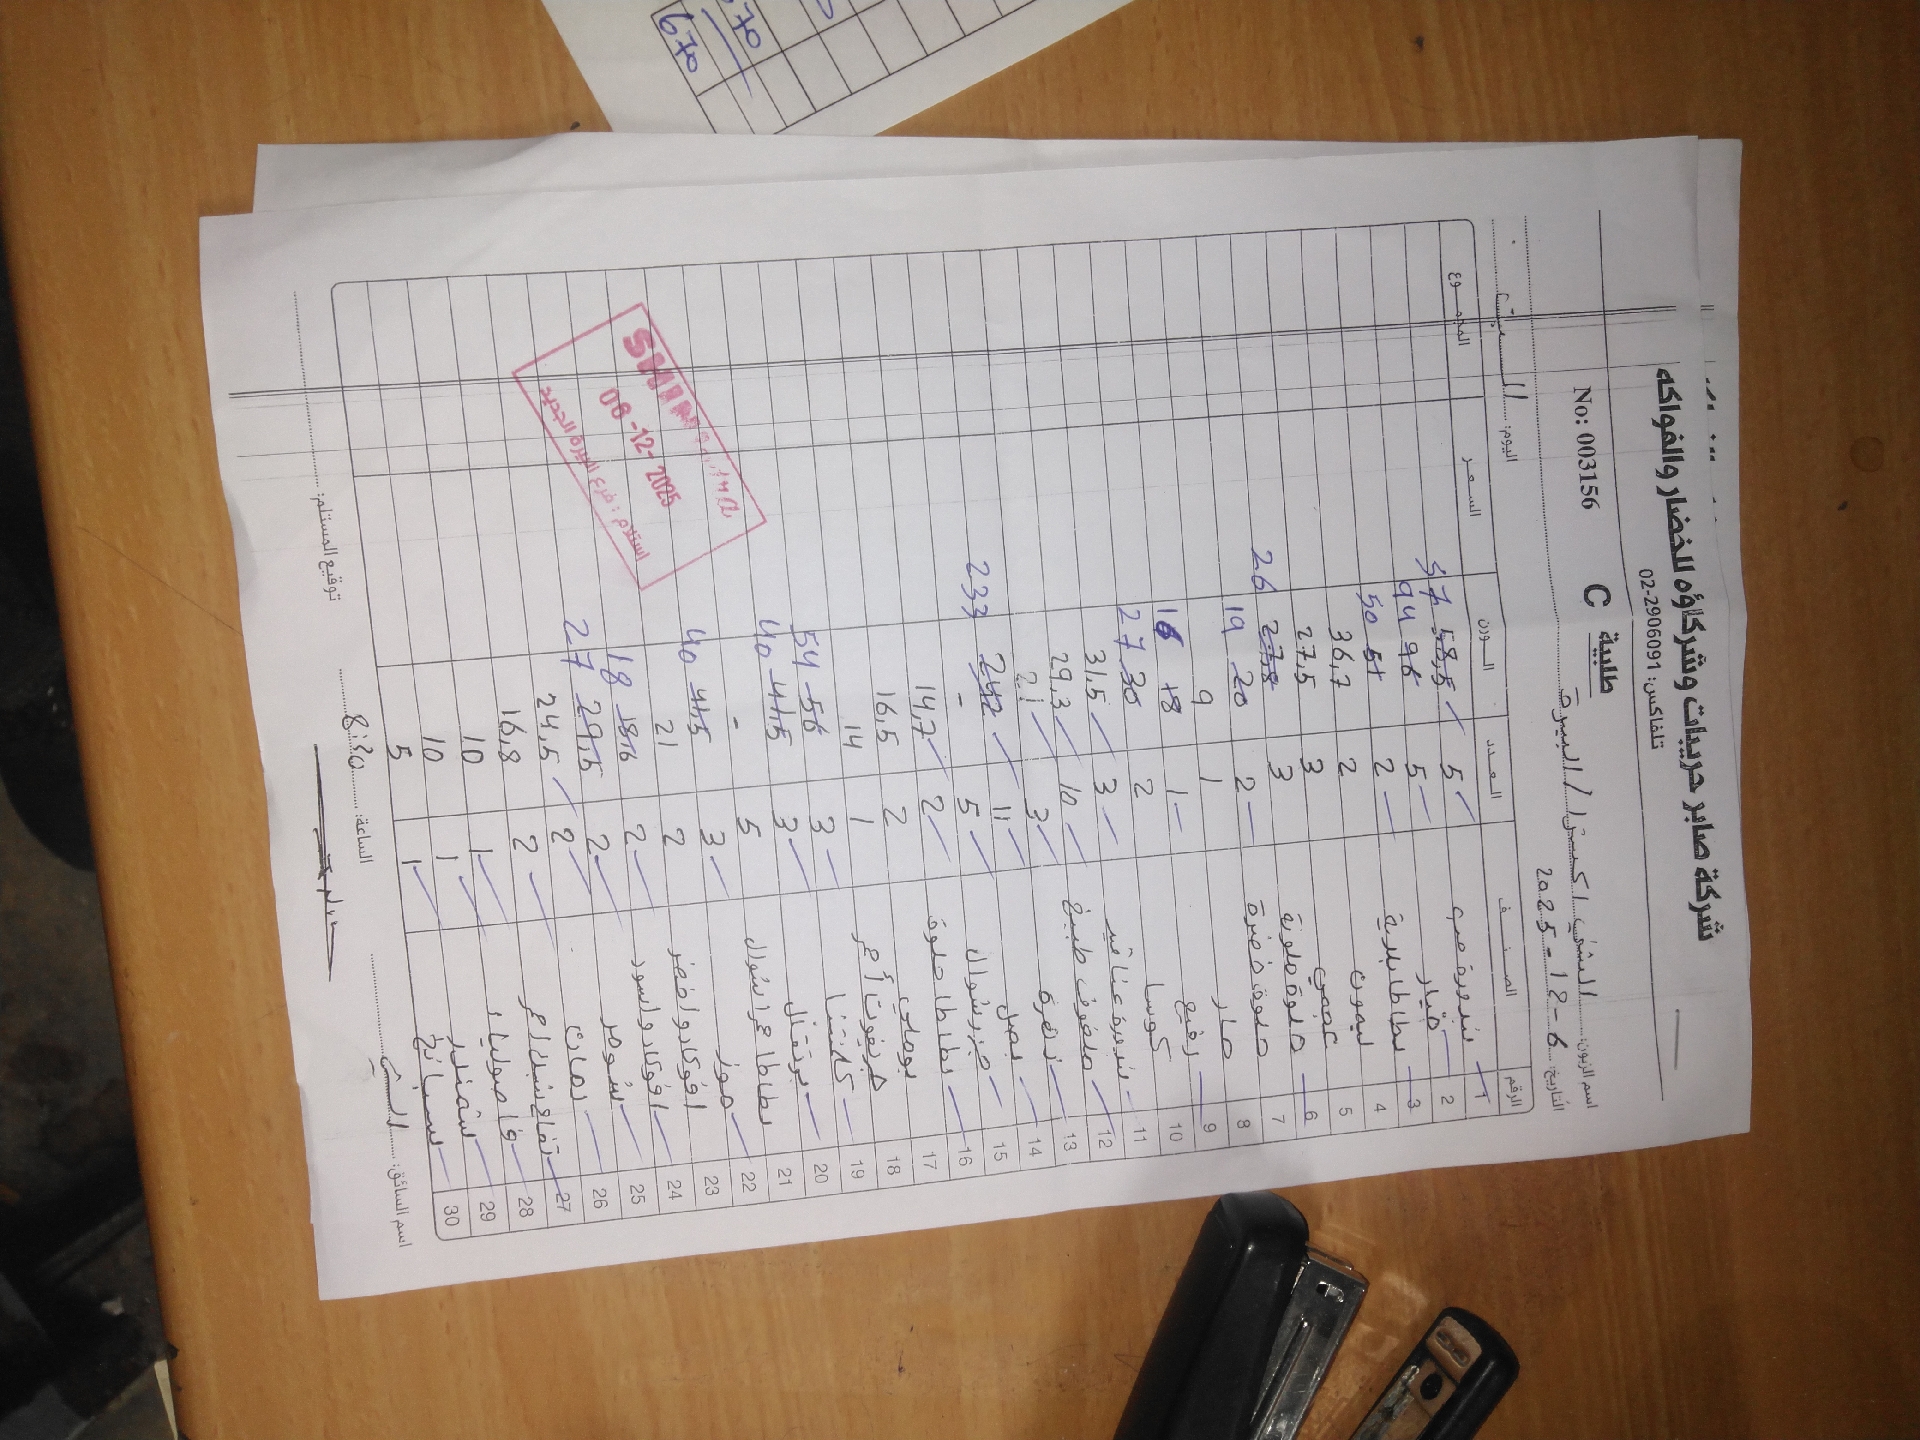 شركة صابر حريبات وشركاؤه للخضار والفواكه
تلفاكس: 02-2906091
No: 003156 طلبية C
اسم الزبون: الشني اكسترا / البيرة
التاريخ: 6-12-2025 اليوم: السبت
الرقم الصنف العدد الوزن السعر المجموع
1 بندورة 5 58,5 57
2 خيار 5 96 94
3 بطاطا 2 51 50
4 ليمون 2 36,7
5 3 27,5
6 حلوة ملونة 3 27,8 26
7 2 20 19
8 1 9
9 1 18 16
10 كوسا 2 30 27
11 بندورة عناقيد 3 31,5
12 ملفوف طبيخ 10 29,3
13 زهرة 3 21
14 بصل 11 242 233
15 جزر شوال 5 -
16 بطاطا حلوة 2 14,7
17 بوملي 2 16,5
18 1 14
19 كلمنتينا 3 56 54
20 برتقال 3 44,5 40
21 بطاطا شوال 5 -
22 موز 3 44,5 40
23 افوكادو اخضر 2 21
24 افوكادو اسود 2 18,6 18
25 شومر 2 29,5 27
26 رمان 2 24,5
27 تفاح 2 16,8
28 فاصوليا 1 10
29 شمندر 1 10
30 سبانخ 1 5
اسم السائق: الساعة: 8:30 توقيع المستلم:
SHINI
06-12-2025
استلام: فرع البيرة الجديد
079